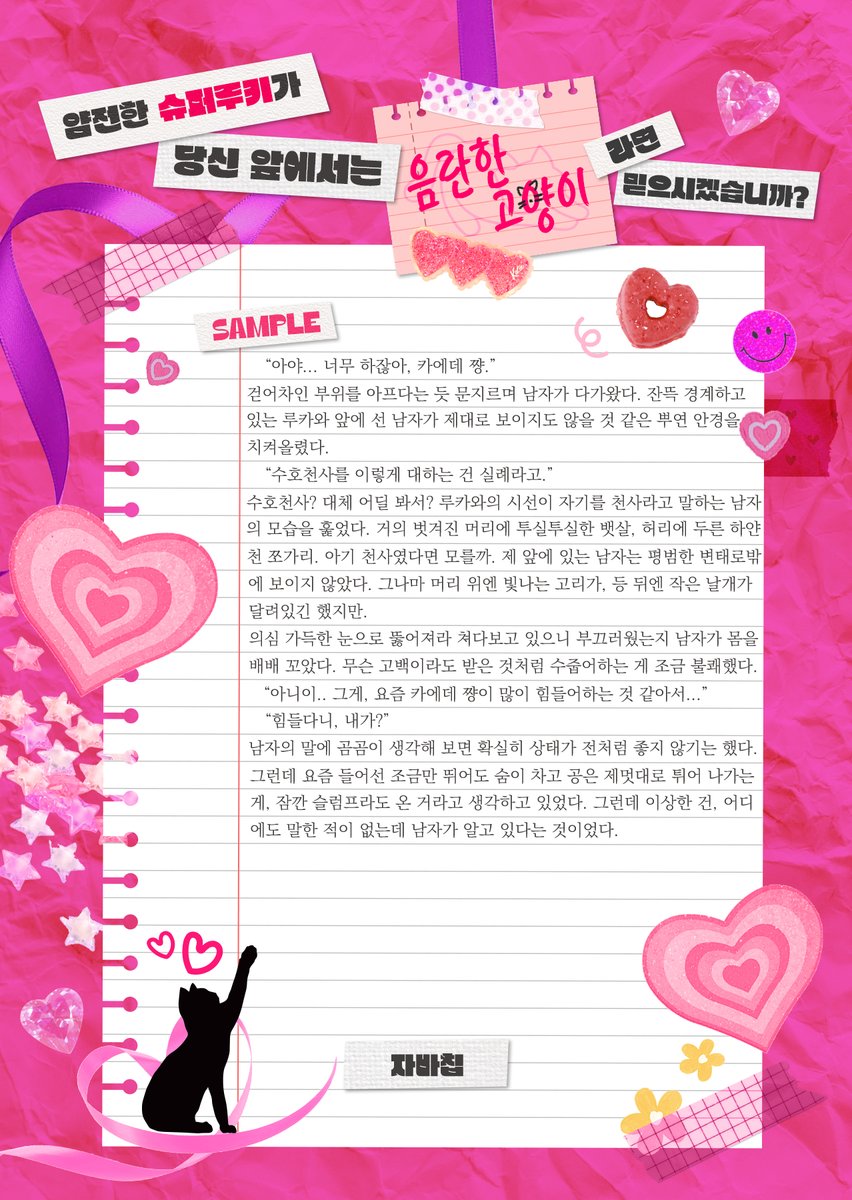 얌전한 슈퍼루키가
당신 앞에서는
음란한
고양이
라면
믿으시겠습니까?
SAMPLE
“아야... 너무 하잖아, 카에데 쨩.”
걷어차인 부위를 아프다는 듯 문지르며 남자가 다가왔다. 잔뜩 경계하고
있는 루카와 앞에 선 남자가 제대로 보이지도 않을 것 같은 뿌연 안경을
치켜올렸다.
“수호천사를 이렇게 대하는 건 실례라고.”
수호천사? 대체 어딜 봐서? 루카와의 시선이 자기를 천사라고 말하는 남자
의 모습을 훑었다. 거의 벗겨진 머리에 투실투실한 뱃살, 허리에 두른 하얀
천 쪼가리. 아기 천사였다면 모를까. 제 앞에 있는 남자는 평범한 변태로밖
에 보이지 않았다. 그나마 머리 위엔 빛나는 고리가, 등 뒤엔 작은 날개가
달려있긴 했지만.
의심 가득한 눈으로 뚫어져라 쳐다보고 있으니 부끄러웠는지 남자가 몸을
배배 꼬았다. 무슨 고백이라도 받은 것처럼 수줍어하는 게 조금 불쾌했다.
“아니이.. 그게, 요즘 카에데 쨩이 많이 힘들어하는 것 같아서...”
“힘들다니, 내가?”
남자의 말에 곰곰이 생각해 보면 확실히 상태가 전처럼 좋지 않기는 했다.
그런데 요즘 들어선 조금만 뛰어도 숨이 차고 공은 제멋대로 튀어 나가는
게, 잠깐 슬럼프라도 온 거라고 생각하고 있었다. 그런데 이상한 건, 어디
에도 말한 적이 없는데 남자가 알고 있다는 것이었다.
자바칩